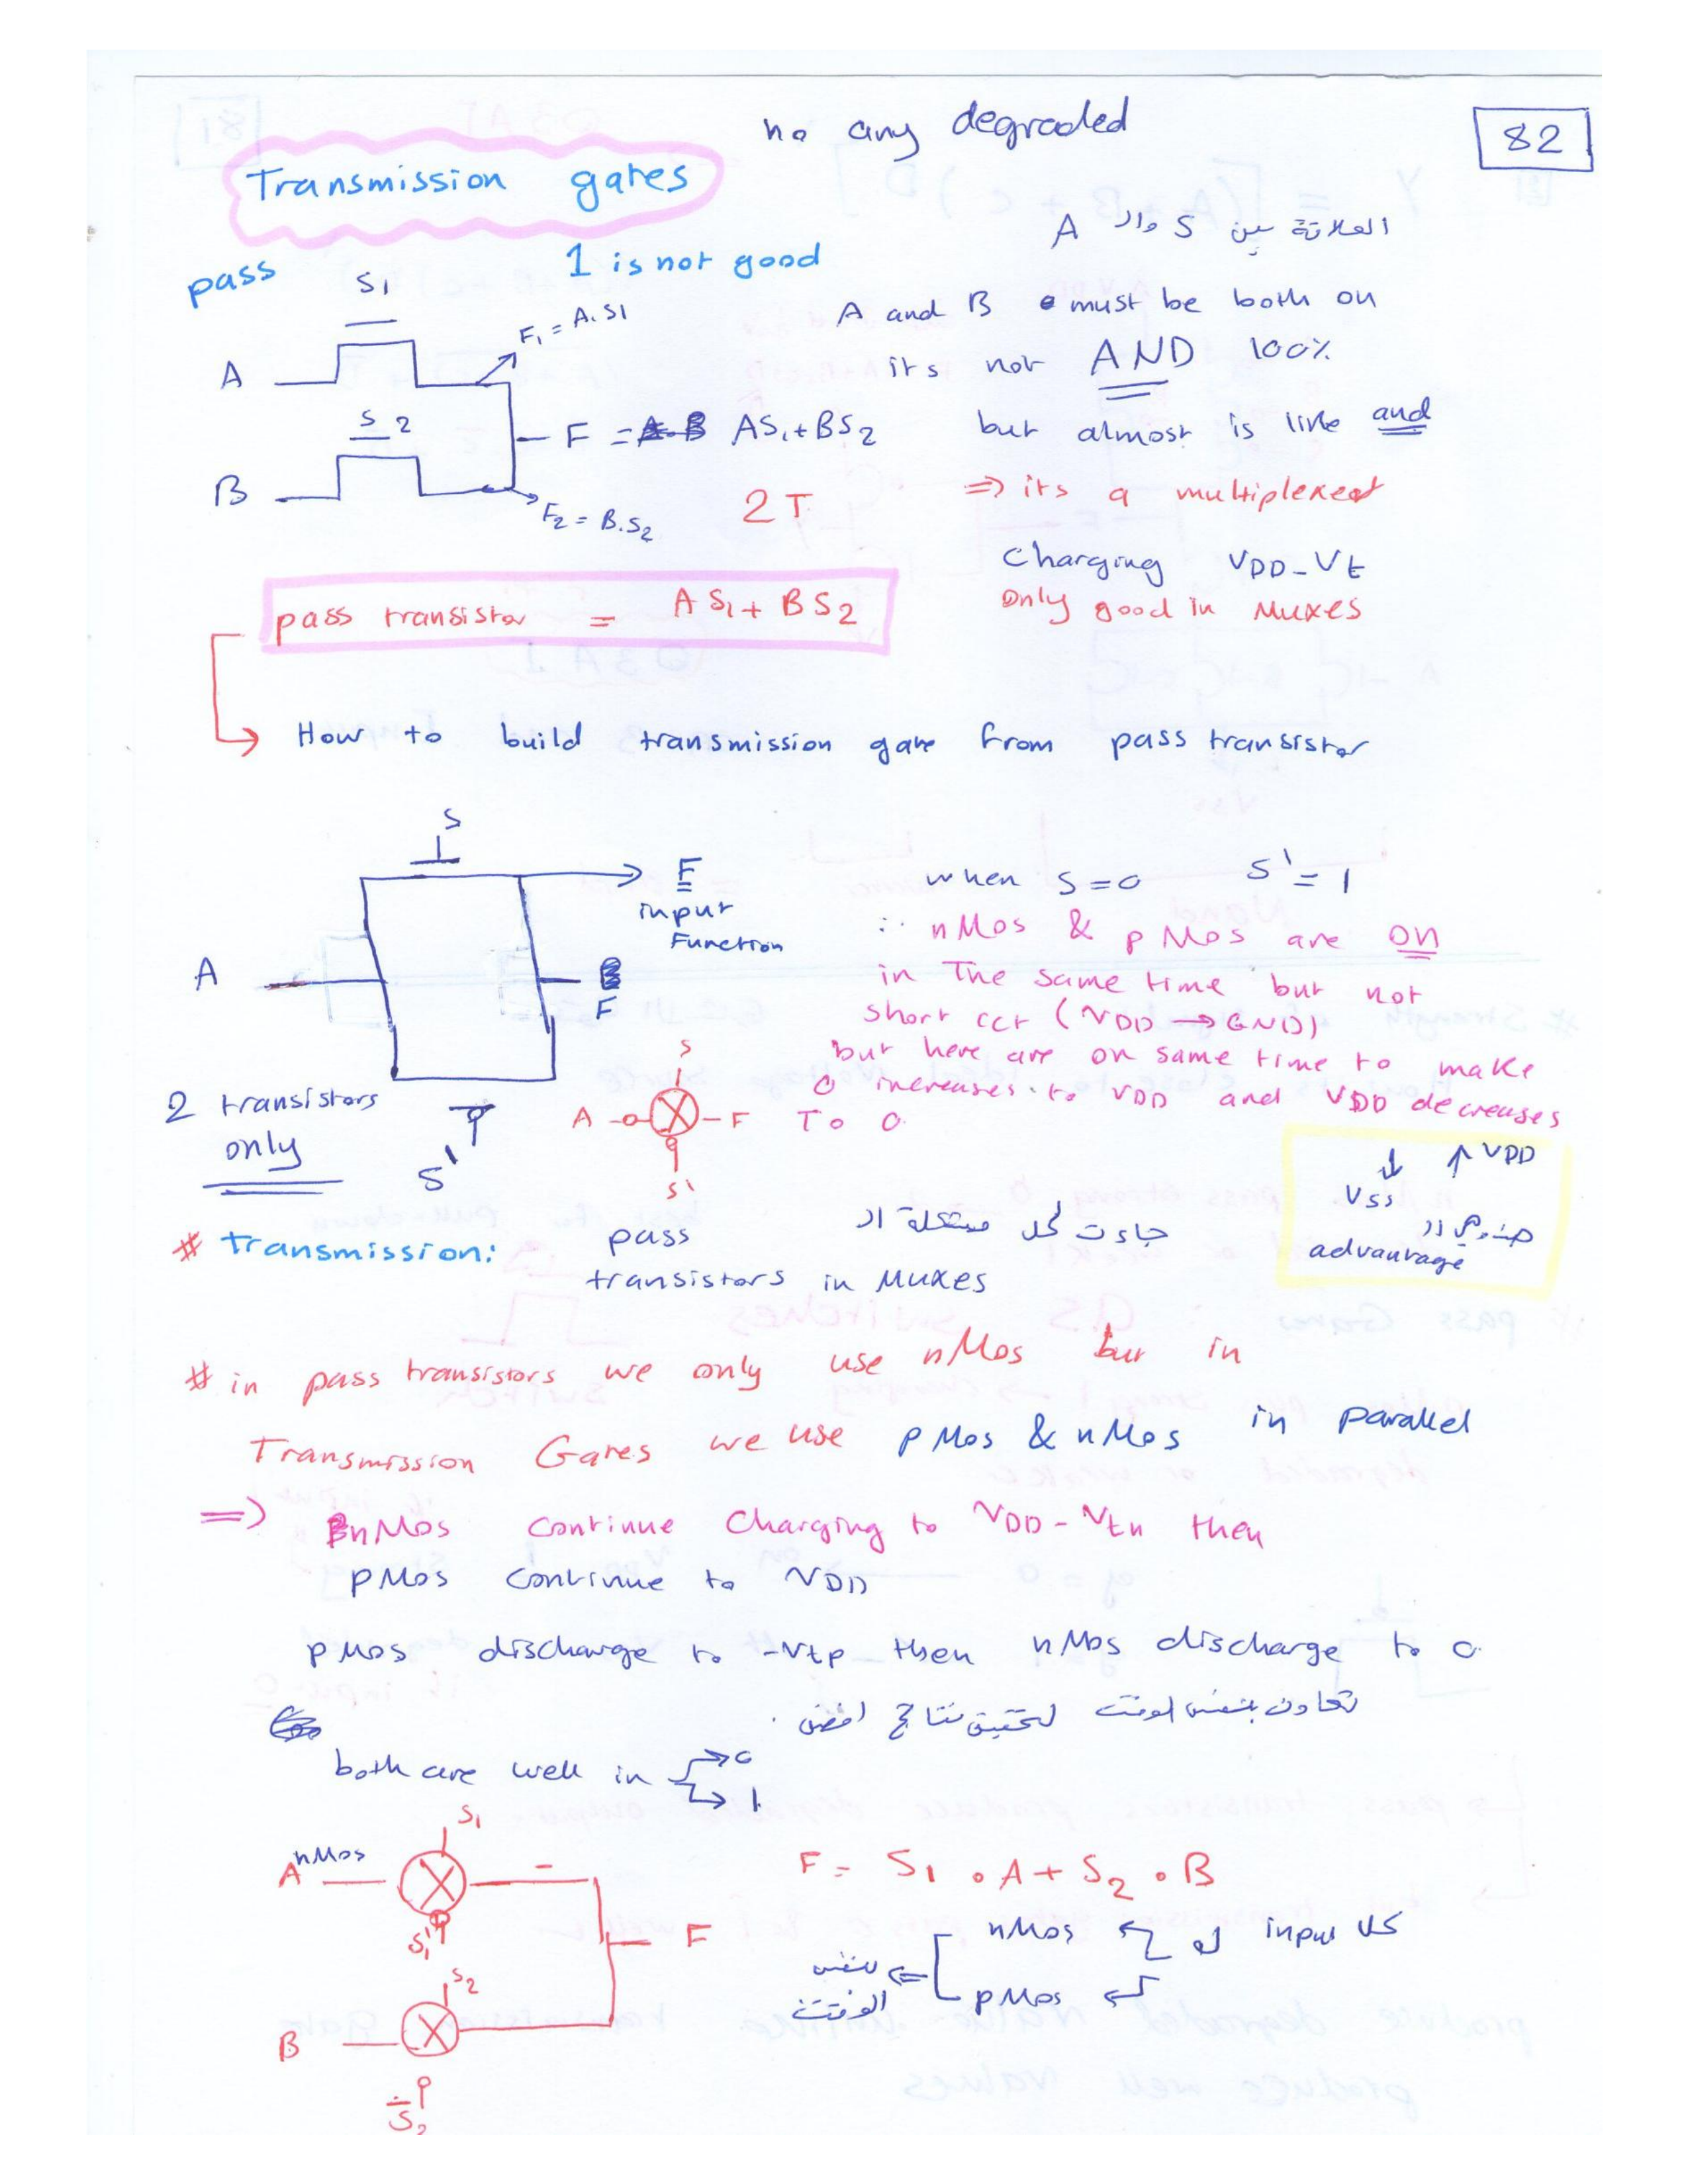 no any degraded
82
Transmission gates
العلاقة بين S وال A
pass 1 is not good
S1
A and B must be both on
F1 = A.S1
its not AND 100%
A
S2
F = AS1+BS2
but almost is like and
B
F2 = B.S2
2T
=> its a multiplexed
Charging VDD-Vt
only good in Muxes
pass transistor = AS1 + BS2
How to build transmission gate from pass transistor
S
F
input
Function
when S=0 S' = 1
∴ nMos & pMos are ON
in The same time but not
short cct (VDD → GND)
but here are on same time to make
0 increases to VDD and VDD decreases
To 0
A
F
2 transistors
only
S'
S
A F
S'
↓ ↑ VDD
Vss
advantage
# transmission: pass جاءت لحل مشكلة ال
transistors in Muxes
# in pass transistors we only use nMos but in
Transmission Gates we use pMos & nMos in parallel
=> nMos continue charging to VDD-Vtn then
pMos continue to VDD
pMos discharge to -Vtp then nMos discharge to 0
تعاون بنفس الوقت لتحقيق نتائج افضل
both are well in 0
1
S1
A nMos
S1'
F
S2
B
S2
F = S1 . A + S2 . B
كل input له nMos
pMos
بنفس
الوقت